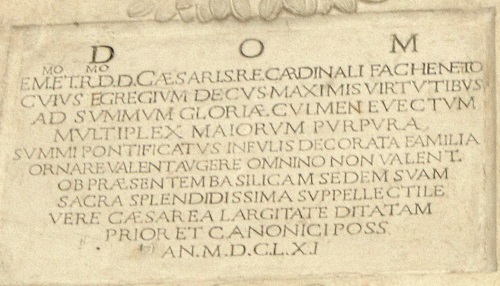 D O M
MO MO
EM. ET R. D. D. CÆSARI S. R. E. CARDINALI FACHENETO
CVIVS EGREGIVM DECVS MAXIMIS VIRTVTIBVS
AD SVMMVM GLORIÆ CVLMEN EVECTVM
MVLTIPLEX MAIORVM PVRPVRA
SVMMI PONTIFICATVS INFVLIS DECORATA FAMILIA
ORNARE VALENT AVGERE OMNINO NON VALENT.
OB PRÆSENTEM BASILICAM SEDEM SVAM
SACRA SPLENDIDISSIMA SVPPELLECTILE
VERE CÆSAREA LARGITATE DITATAM
PRIOR ET CANONICI POSS.
AN. M. D. C. L. X I